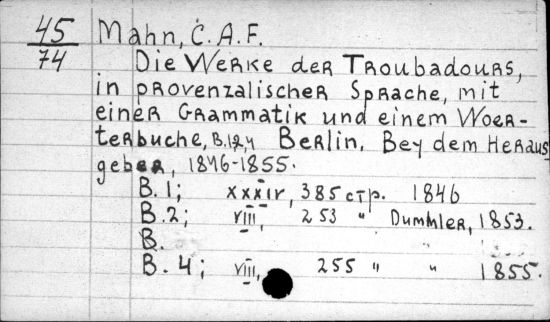 45
74
Mahn, C. A. F.
Die Werke der Troubadours,
in provenzalischer Sprache, mit
einer Grammatik und einem Woer-
terbuche, B. 1,2,4 Berlin, Bey dem Heraus
geber, 1846-1855.
B. 1; XXXIV, 385 стр. 1846
B. 2; VIII, 253 " Dummler, 1853.
B.
B. 4; VIII, 255 " " 1855.